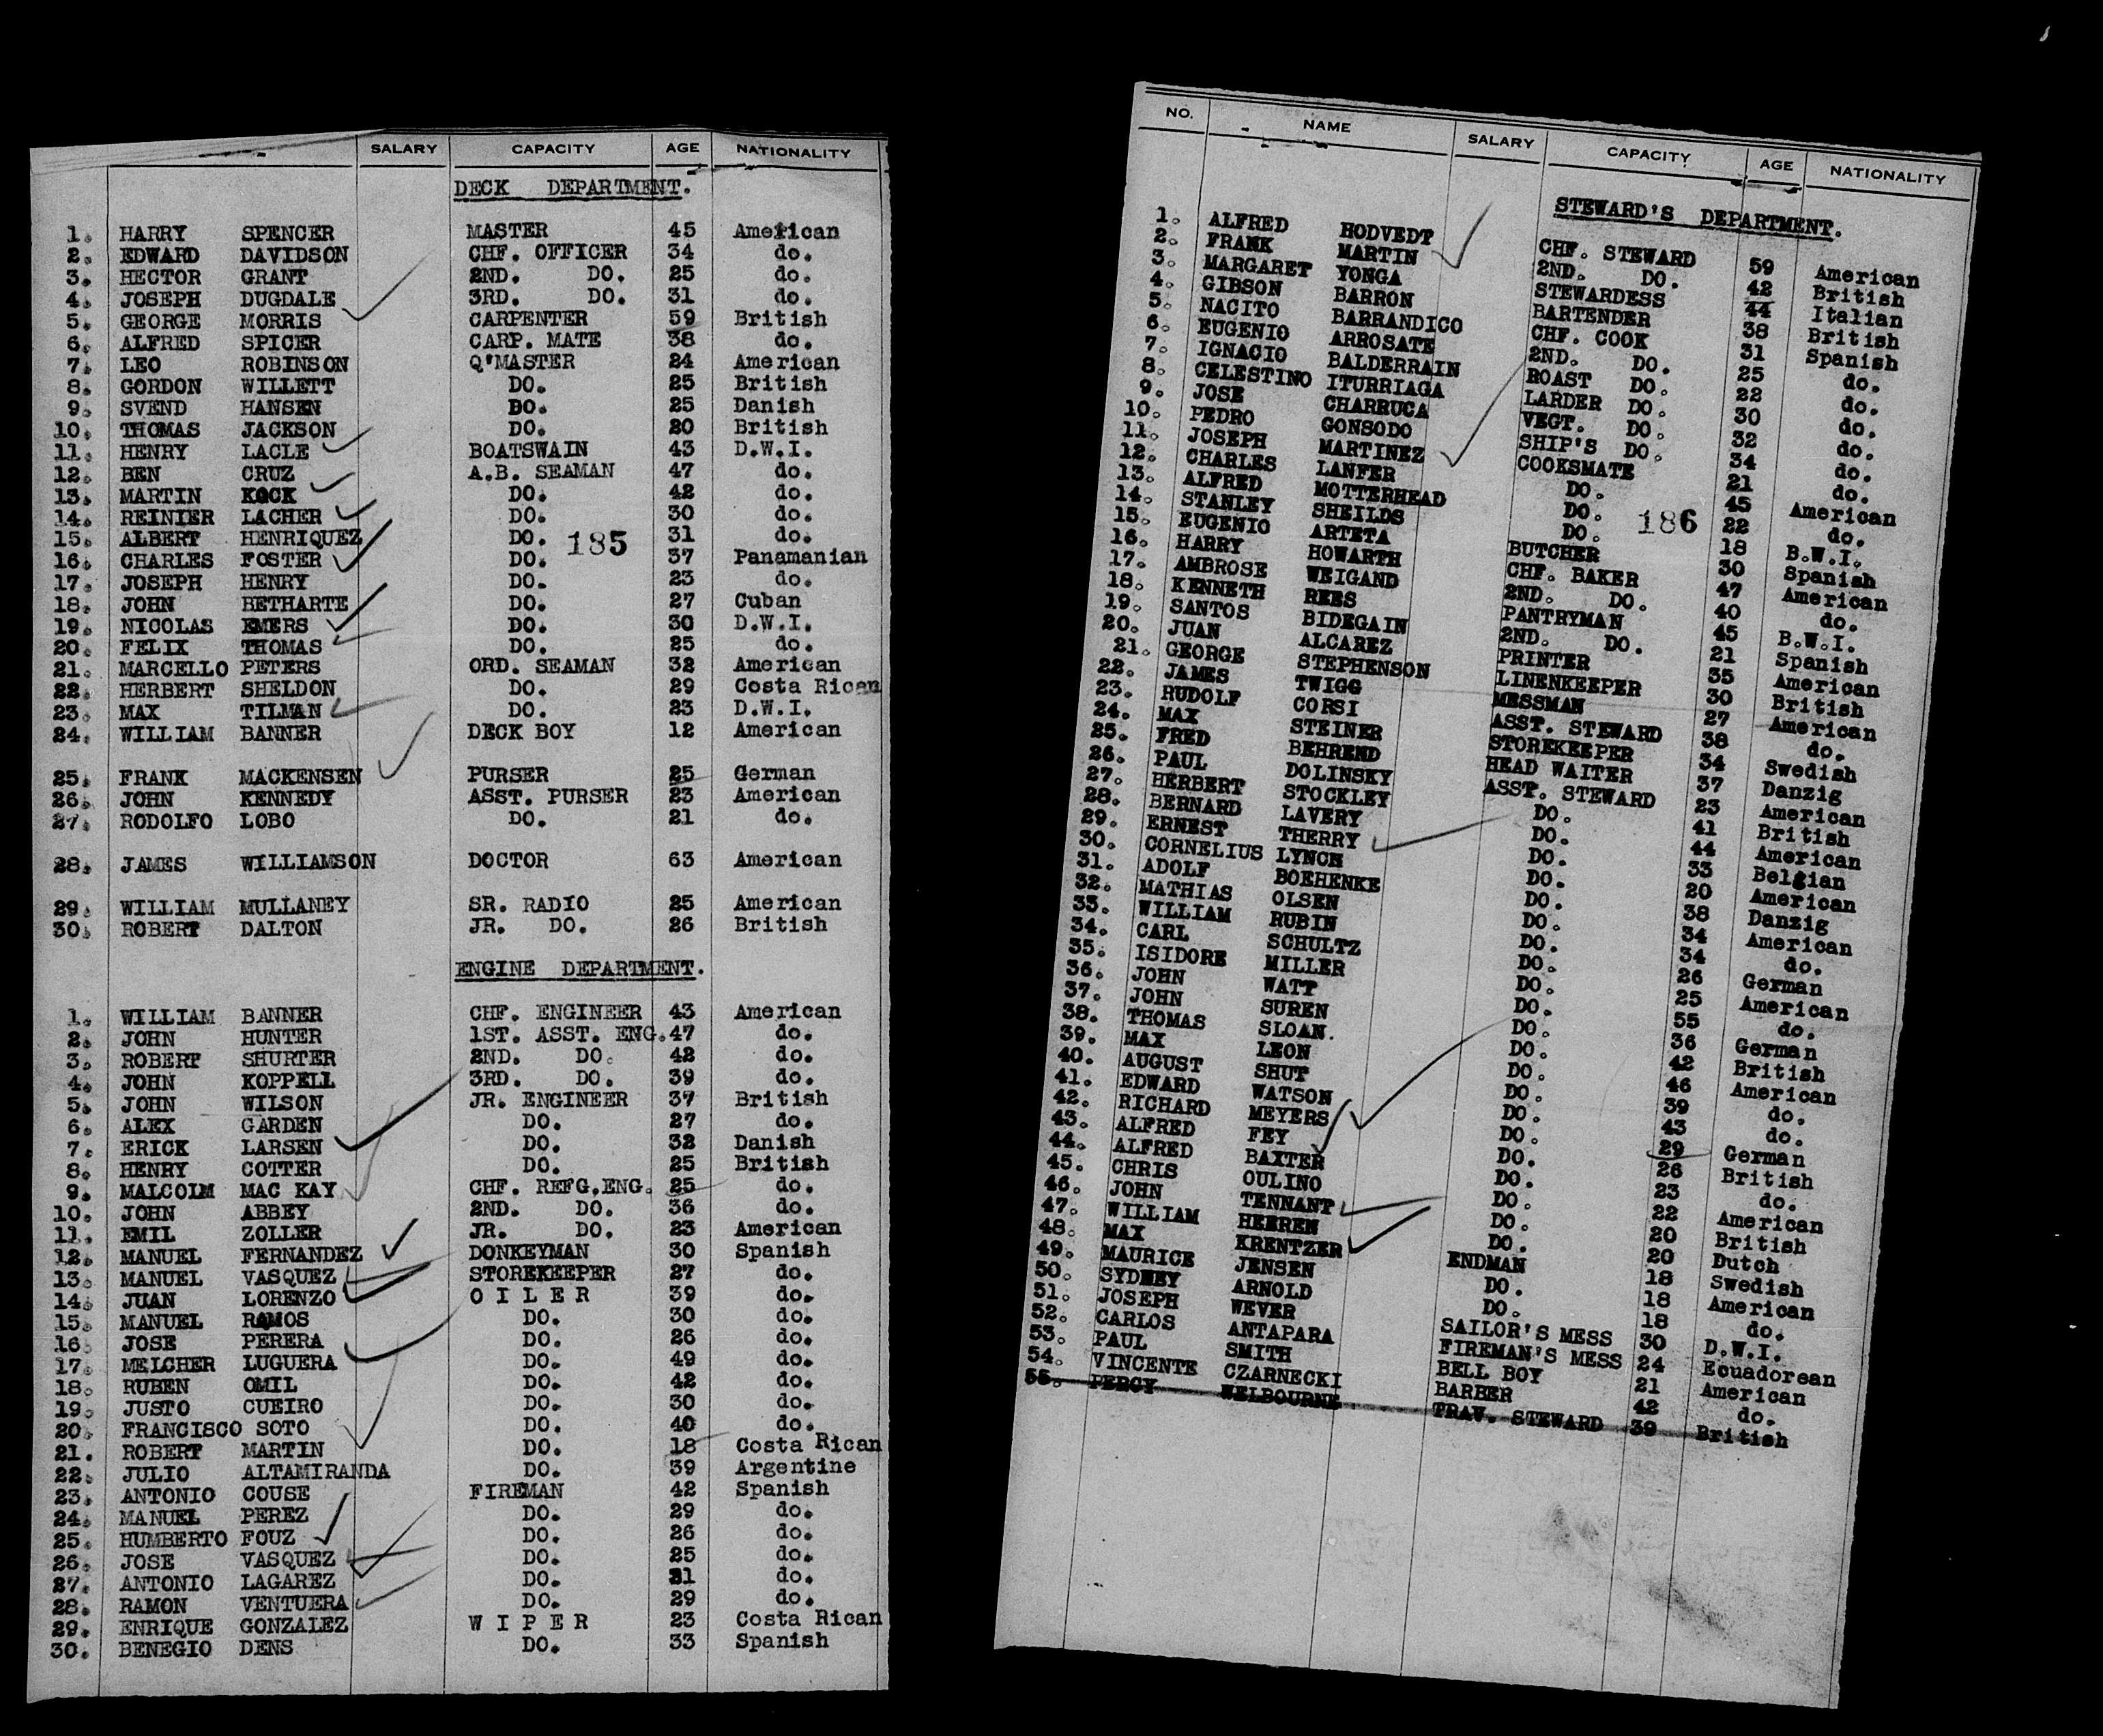 SALARY CAPACITY AGE NATIONALITY
DECK DEPARTMENT.
1. HARRY SPENCER MASTER 45 American
2. EDWARD DAVIDSON CHF. OFFICER 34 do.
3. HECTOR GRANT 2ND. DO. 25 do.
4. JOSEPH DUGDALE 3RD. DO. 31 do.
5. GEORGE MORRIS CARPENTER 59 British
6. ALFRED SPICER CARP. MATE 38 do.
7. LEO ROBINSON Q'MASTER 24 American
8. GORDON WILLETT DO. 25 British
9. SVEND HANSEN DO. 25 Danish
10. THOMAS JACKSON DO. 20 British
11. HENRY LACLE BOATSWAIN 43 D.W.I.
12. BEN CRUZ A.B. SEAMAN 47 do.
13. MARTIN KOCK DO. 42 do.
14. REINIER LACHER DO. 30 do.
15. ALBERT HENRIQUEZ DO. 185 31 do.
16. CHARLES FOSTER DO. 37 Panamanian
17. JOSEPH HENRY DO. 23 do.
18. JOHN BETHARTE DO. 27 Cuban
19. NICOLAS EMERS DO. 30 D.W.I.
20. FELIX THOMAS DO. 25 do.
21. MARCELLO PETERS ORD. SEAMAN 32 American
22. HERBERT SHELDON DO. 29 Costa Rican
23. MAX TILMAN DO. 23 D.W.I.
24. WILLIAM BANNER DECK BOY 12 American
25. FRANK MACKENSEN PURSER 25 German
26. JOHN KENNEDY ASST. PURSER 23 American
27. RODOLFO LOBO DO. 21 do.
28. JAMES WILLIAMSON DOCTOR 63 American
29. WILLIAM MULLANEY SR. RADIO 25 American
30. ROBERT DALTON JR. DO. 26 British
ENGINE DEPARTMENT.
1. WILLIAM BANNER CHF. ENGINEER 43 American
2. JOHN HUNTER 1ST. ASST. ENG. 47 do.
3. ROBERT SHURTER 2ND. DO. 42 do.
4. JOHN KOPPELL 3RD. DO. 39 do.
5. JOHN WILSON JR. ENGINEER 37 British
6. ALEX GARDEN DO. 27 do.
7. ERICK LARSEN DO. 32 Danish
8. HENRY COTTER DO. 25 British
9. MALCOLM MAC KAY CHF. REFG.ENG. 25 do.
10. JOHN ABBEY 2ND. DO. 36 do.
11. EMIL ZOLLER JR. DO. 23 American
12. MANUEL FERNANDEZ DONKEYMAN 30 Spanish
13. MANUEL VASQUEZ STOREKEEPER 27 do.
14. JUAN LORENZO O I L E R 39 do.
15. MANUEL RAMOS DO. 30 do.
16. JOSE PERERA DO. 26 do.
17. MELCHER LUGUERA DO. 49 do.
18. RUBEN OMIL DO. 42 do.
19. JUSTO CUEIRO DO. 30 do.
20. FRANCISCO SOTO DO. 40 do.
21. ROBERT MARTIN DO. 18 Costa Rican
22. JULIO ALTAMIRANDA DO. 39 Argentine
23. ANTONIO COUSE FIREMAN 42 Spanish
24. MANUEL PEREZ DO. 29 do.
25. HUMBERTO FOUZ DO. 26 do.
26. JOSE VASQUEZ DO. 25 do.
27. ANTONIO LAGAREZ DO. 31 do.
28. RAMON VENTUERA DO. 29 do.
29. ENRIQUE GONZALEZ W I P E R 23 Costa Rican
30. BENEGIO DENS DO. 33 Spanish
NO. NAME SALARY CAPACITY AGE NATIONALITY
STEWARD'S DEPARTMENT.
1. ALFRED HODVEDT CHF. STEWARD 59 American
2. FRANK MARTIN 2ND. DO. 42 British
3. MARGARET YONGA STEWARDESS 44 Italian
4. GIBSON BARRON BARTENDER 38 British
5. NACITO BARRANDICO CHF. COOK 31 Spanish
6. EUGENIO ARROSATE 2ND. DO. 25 do.
7. IGNACIO BALDERRAIN ROAST DO. 22 do.
8. CELESTINO ITURRIAGA LARDER DO. 30 do.
9. JOSE CHARRUCA VEGT. DO. 32 do.
10. PEDRO GONSODO SHIP'S DO. 34 do.
11. JOSEPH MARTINEZ COOKSMATE 21 do.
12. CHARLES LANFER DO. 45 American
13. ALFRED MOTTERHEAD DO. 186 22 do.
14. STANLEY SHEILDS DO. 18 B.W.I.
15. EUGENIO ARTETA BUTCHER 30 Spanish
16. HARRY HOWARTH CHF. BAKER 47 American
17. AMBROSE WEIGAND 2ND. DO. 40 do.
18. KENNETH REES PANTRYMAN 45 B.W.I.
19. SANTOS BIDEGAIN 2ND. DO. 21 Spanish
20. JUAN ALCAREZ PRINTER 35 American
21. GEORGE STEPHENSON LINENKEEPER 30 British
22. JAMES TWIGG MESSMAN 27 American
23. RUDOLF CORSI ASST. STEWARD 38 do.
24. MAX STEINER STOREKEEPER 34 Swedish
25. FRED BEHREND HEAD WAITER 37 Danzig
26. PAUL DOLINSKY ASST. STEWARD 23 American
27. HERBERT STOCKLEY DO. 41 British
28. BERNARD LAVERY DO. 44 American
29. ERNEST THERRY DO. 33 Belgian
30. CORNELIUS LYNCH DO. 20 American
31. ADOLF BOEHENKE DO. 38 Danzig
32. MATHIAS OLSEN DO. 34 American
33. WILLIAM RUBIN DO. 34 do.
34. CARL SCHULTZ DO. 26 German
35. ISIDORE MILLER DO. 25 American
36. JOHN WATT DO. 55 do.
37. JOHN SUREN DO. 36 German
38. THOMAS SLOAN. DO. 42 British
39. MAX LEON DO. 46 American
40. AUGUST SHUT DO. 39 do.
41. EDWARD WATSON DO. 43 do.
42. RICHARD MEYERS DO. 29 German
43. ALFRED FEY DO. 26 British
44. ALFRED BAXTER DO. 23 do.
45. CHRIS OULINO DO. 22 American
46. JOHN TENNANT DO. 20 British
47. WILLIAM HEEREN DO. 20 Dutch
48. MAX KRENTZER ENDMAN 18 Swedish
49. MAURICE JENSEN DO. 18 American
50. SYDNEY ARNOLD DO. 18 do.
51. JOSEPH WEVER SAILOR'S MESS 30 D.W.I.
52. CARLOS ANTAPARA FIREMAN'S MESS 24 Ecuadorean
53. PAUL SMITH BELL BOY 21 American
54. VINCENTE CZARNECKI BARBER 42 do.
55. PERCY WELBOURNE. TRAV. STEWARD 39 British